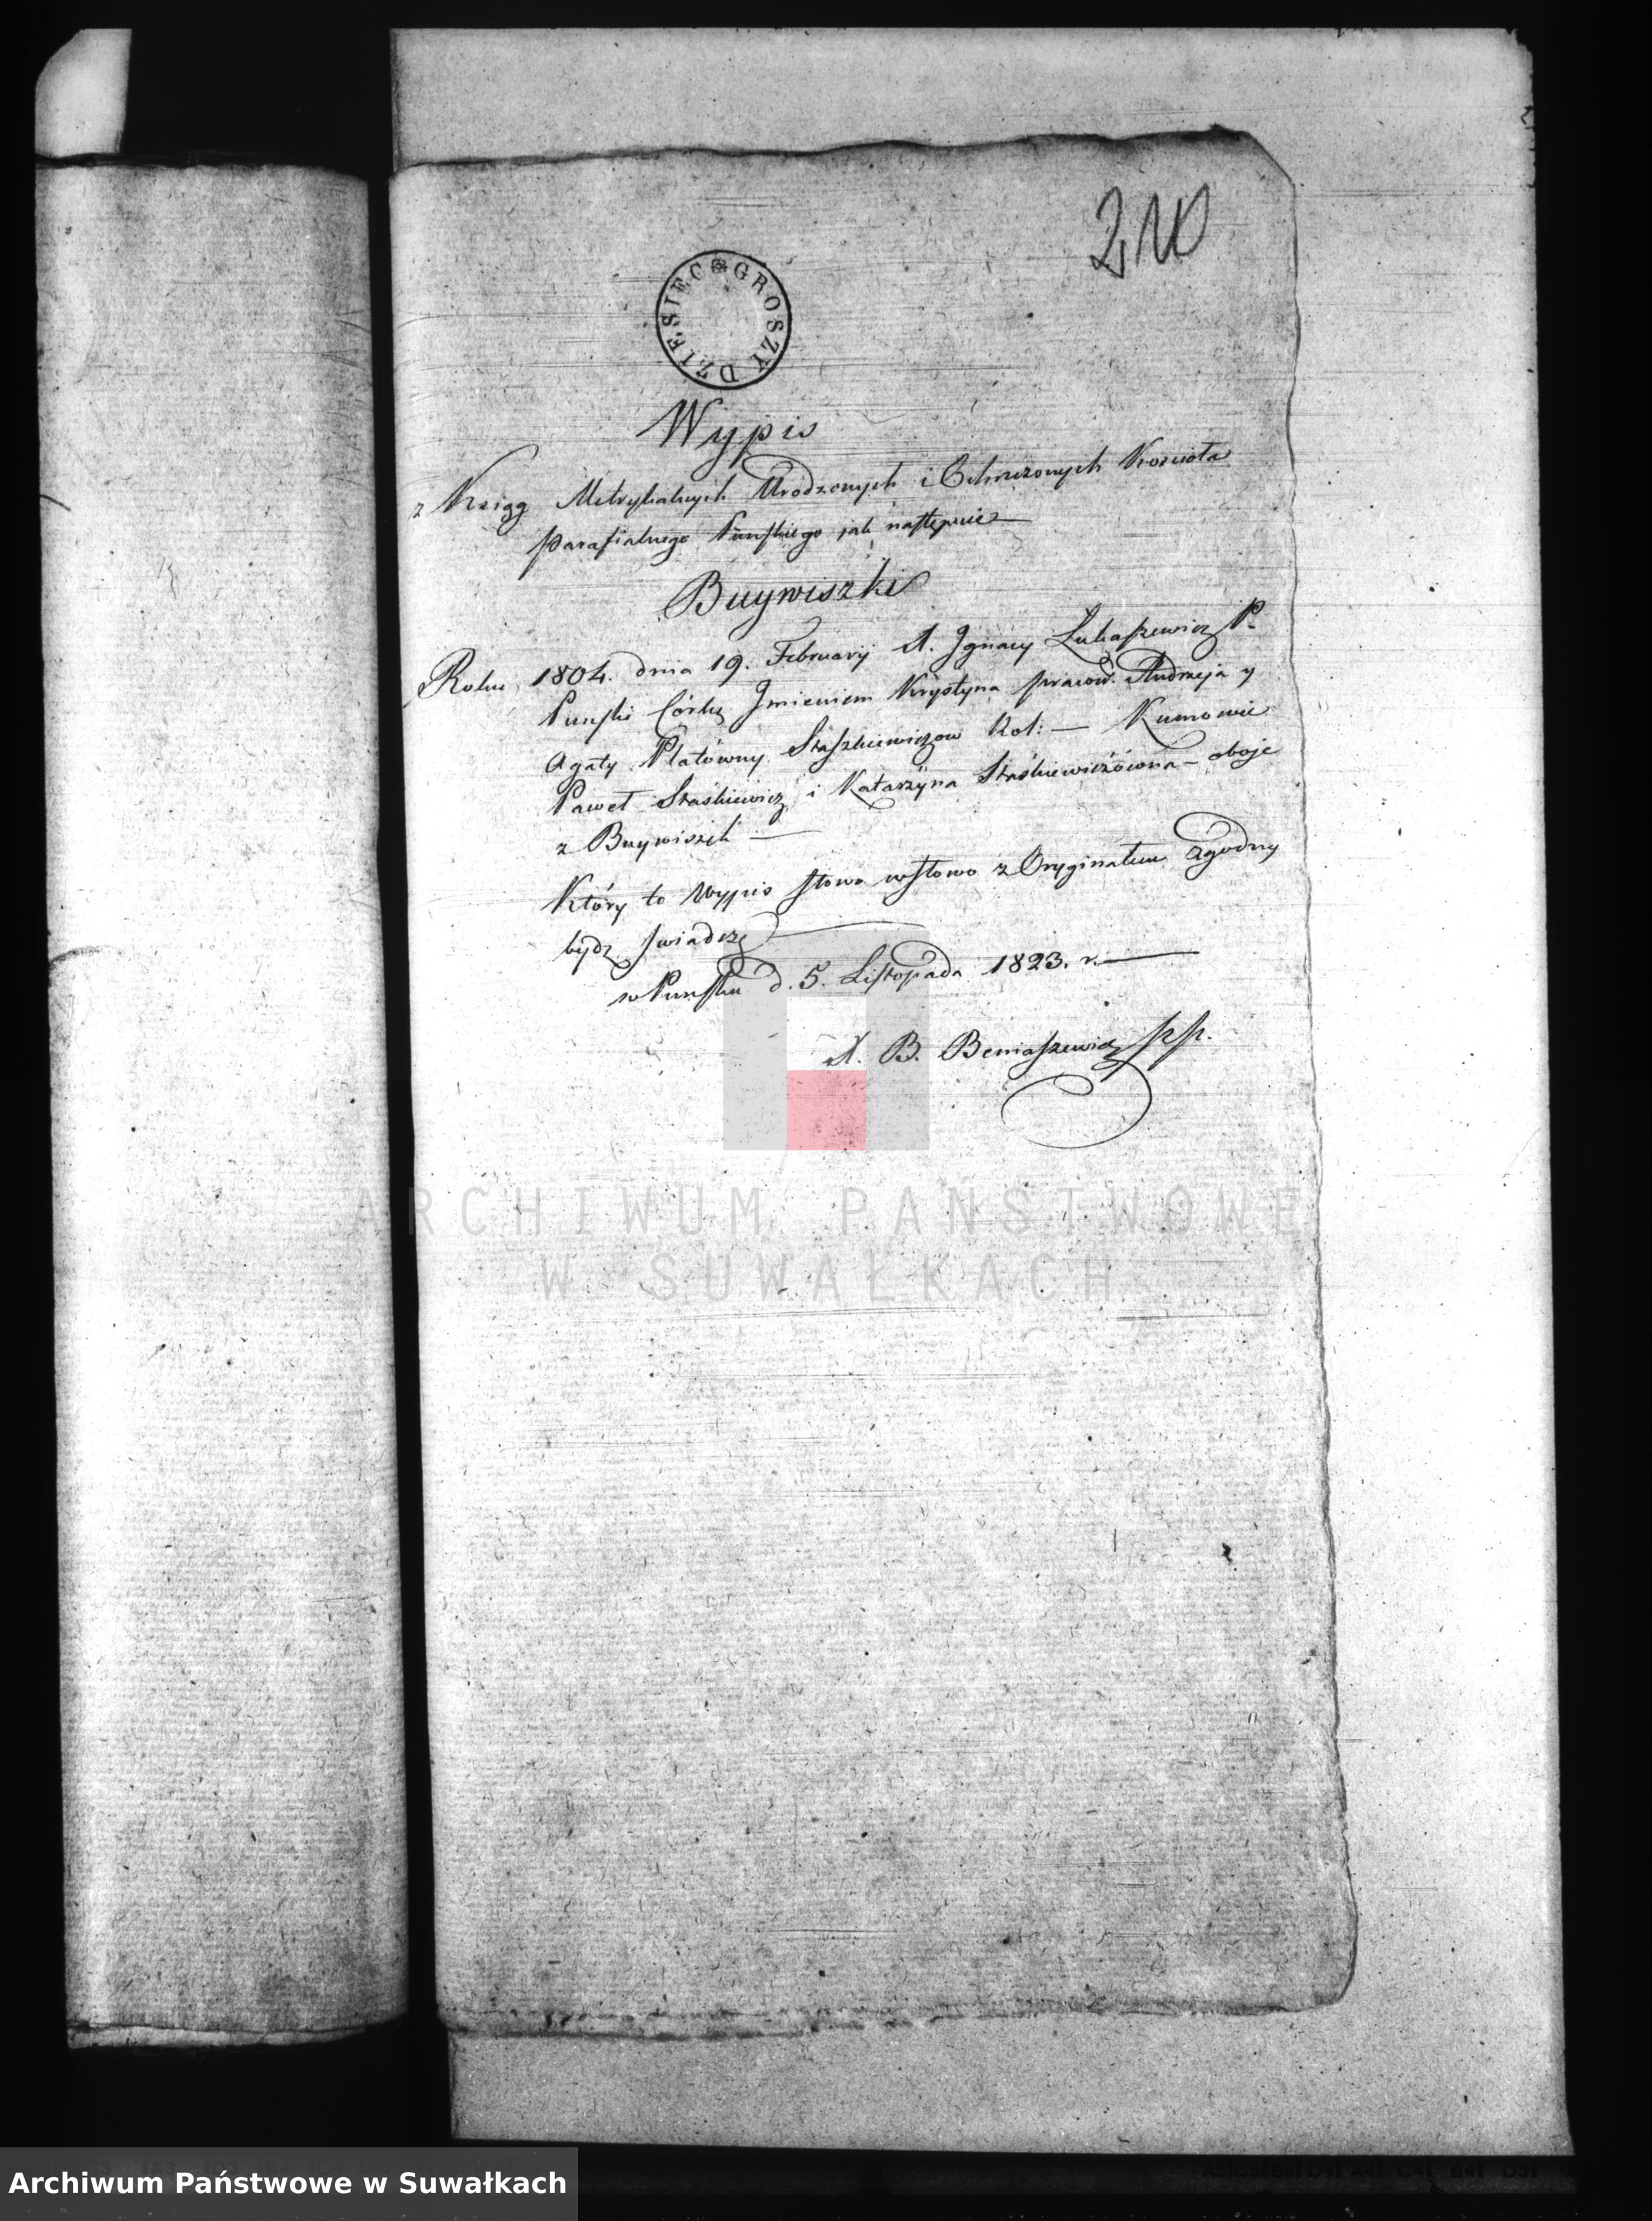 210
DZIESIEC GROSZY
Wypis
z Xsiąg Metrykalnych Urodzonych i Ochrzczonych Koscioła
Parafialnego Punskiego jak następuie
Buywiszki
Roku 1804. dnia 19. Februarij X. Ignacy Lukaszewicz P.
Punski Córkę Imieniem Krystyna pracow. Andrzeja y
Agaty Platówny Staszkiewiczow Kol: — Kumowie
Paweł Staśkiewicz i Katarzyna Staśkiewiczówna — oboje
z Buywiszek —
Który to Wypis słowo wsłowo z Oryginałem zgodny
bydz swiadczę —
w Punsku d. 5. Listopada 1823. r. —
X. B. Beniaszewicz
ARCHIWUM PAŃSTWOWE
W SUWAŁKACH
Archiwum Państwowe w Suwałkach